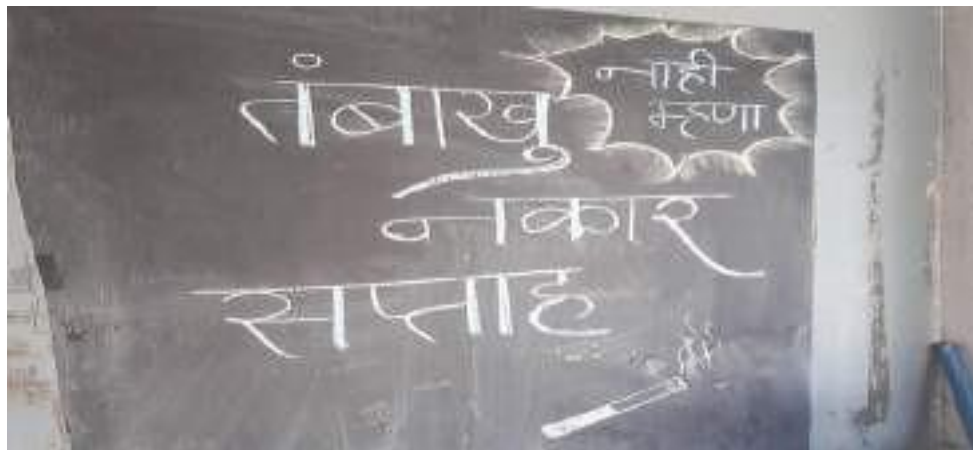 तंबाखू
नाही
म्हणा
नकार
सप्ताह